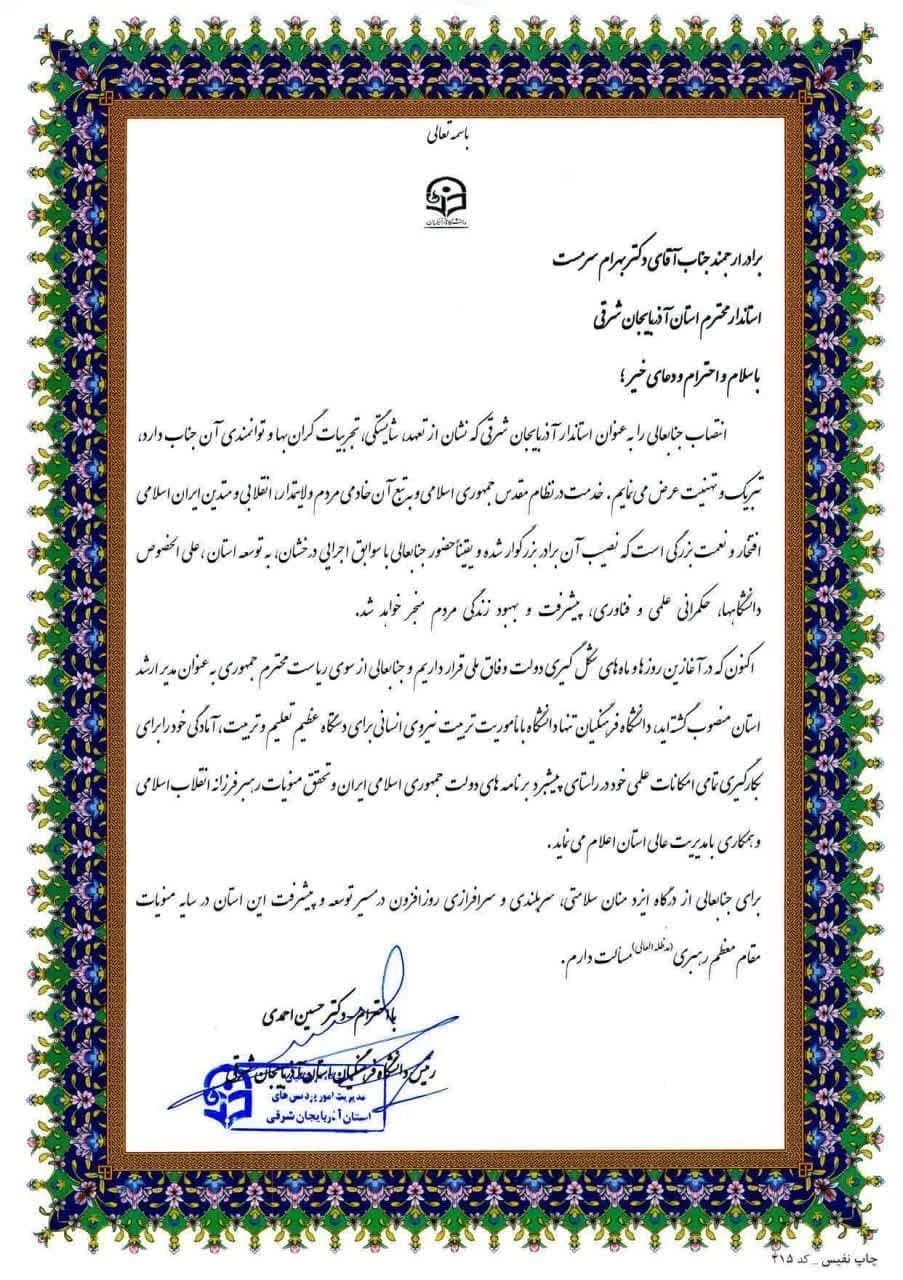 باسمه تعالی
دانشگاه فرهنگیان
برادر ارجمند جناب آقای دکتر بهرام سرمست
استاندار محترم استان آذربایجان شرقی
با سلام و احترام و دعای خیر؛
انتصاب جنابعالی را به عنوان استاندار آذربایجان شرقی که نشان از تعهد، شایستگی، تجربیات گران بها و توانمندی آن جناب دارد،
تبریک و تهنیت عرض می نمایم. خدمت در نظام مقدس جمهوری اسلامی و به تبع آن خادمی مردم ولایتمدار، انقلابی و متدین ایران اسلامی
افتخار و نعمت بزرگی است که نصیب آن برادر بزرگوار شده و یقینا حضور جنابعالی با سوابق اجرایی درخشان، به توسعه استان، علی الخصوص
دانشگاهها، حکمرانی علمی و فناوری، پیشرفت و بهبود زندگی مردم منجر خواهد شد.
اکنون که در آغازین روزها و ماه های شکل گیری دولت وفاق ملی قرار داریم و جنابعالی از سوی ریاست محترم جمهوری به عنوان مدیر ارشد
استان منصوب گشته اید، دانشگاه فرهنگیان تنها دانشگاه با مأموریت تربیت نیروی انسانی برای دستگاه عظیم تعلیم و تربیت، آمادگی خود را برای
بکارگیری تمامی امکانات علمی خود در راستای پیشبرد برنامه های دولت جمهوری اسلامی ایران و تحقق منویات رهبر فرزانه انقلاب اسلامی
و همکاری با مدیریت عالی استان اعلام می نماید.
برای جنابعالی از درگاه ایزد منان سلامتی، سربلندی و سرافرازی روز افزون در مسیر توسعه و پیشرفت این استان در سایه منویات
مقام معظم رهبری (مدظله العالی) مسألت دارم.
با احترام - دکتر حسین احمدی
رئیس دانشگاه فرهنگیان استان آذربایجان شرقی
مدیریت امور پردیس های
استان آذربایجان شرقی
چاپ نفیس _ کد ۴۱۵